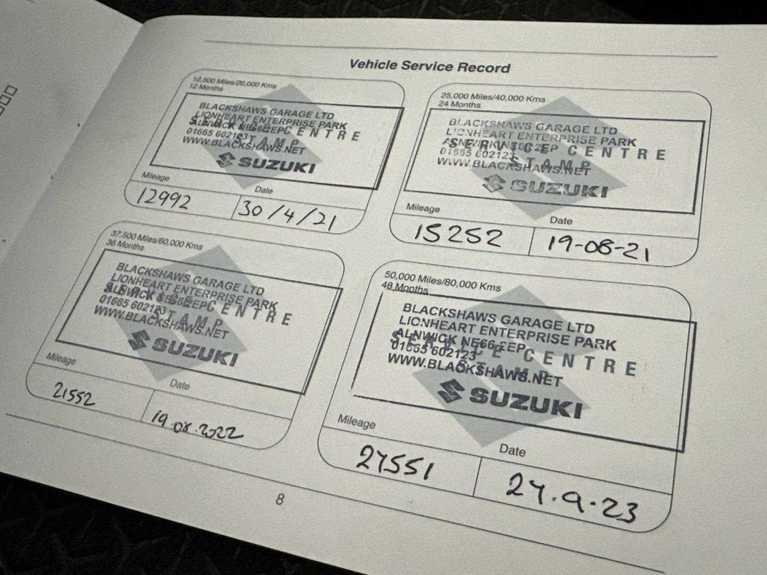 Vehicle Service Record
12,500 Miles/20,000 Kms
12 Months
BLACKSHAWS GARAGE LTD
LIONHEART ENTERPRISE PARK
ALNWICK
01665 602123
WWW.BLACKSHAWS.NET
SERVICE CENTRE
STAMP
SUZUKI
Mileage
Date
12992
30/4/21
25,000 Miles/40,000 Kms
24 Months
BLACKSHAWS GARAGE LTD
LIONHEART ENTERPRISE PARK
ALNWICK
01665 602123
WWW.BLACKSHAWS.NET
SERVICE CENTRE
STAMP
SUZUKI
Mileage
Date
15252
19-08-21
37,500 Miles/60,000 Kms
36 Months
BLACKSHAWS GARAGE LTD
LIONHEART ENTERPRISE PARK
ALNWICK
01665 602123
WWW.BLACKSHAWS.NET
SERVICE CENTRE
STAMP
SUZUKI
Mileage
Date
21552
19.08.2022
50,000 Miles/80,000 Kms
48 Months
BLACKSHAWS GARAGE LTD
LIONHEART ENTERPRISE PARK
ALNWICK NE66 2EP
01665 602123
WWW.BLACKSHAWS.NET
SERVICE CENTRE
STAMP
SUZUKI
Mileage
Date
27551
27.9.23
8